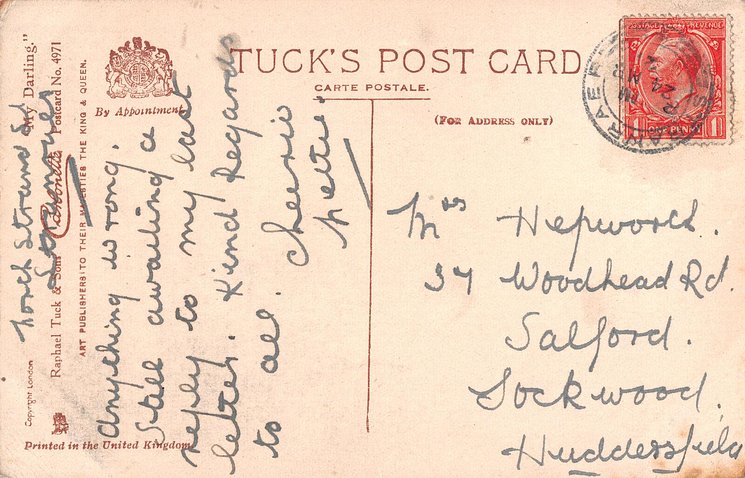 TUCK'S POST CARD
CARTE POSTALE.
(FOR ADDRESS ONLY)
By Appointment
POSTAGE REVENUE
1 ONE PENNY 1
STRANRAER
Mrs Hepworth.
37 Woodhead Rd.
Salford.
Lockwood.
Huddersfield
"My Darling."
Postcard No. 4971
Raphael Tuck & Sons'
ART PUBLISHERS TO THEIR MAJESTIES THE KING & QUEEN.
Copyright London
Printed in the United Kingdom
North Strand St
Stranraer
Anything wrong.
Still awaiting a
reply to my last
letter. Kind Regards
to all. Cheerio
Nettie